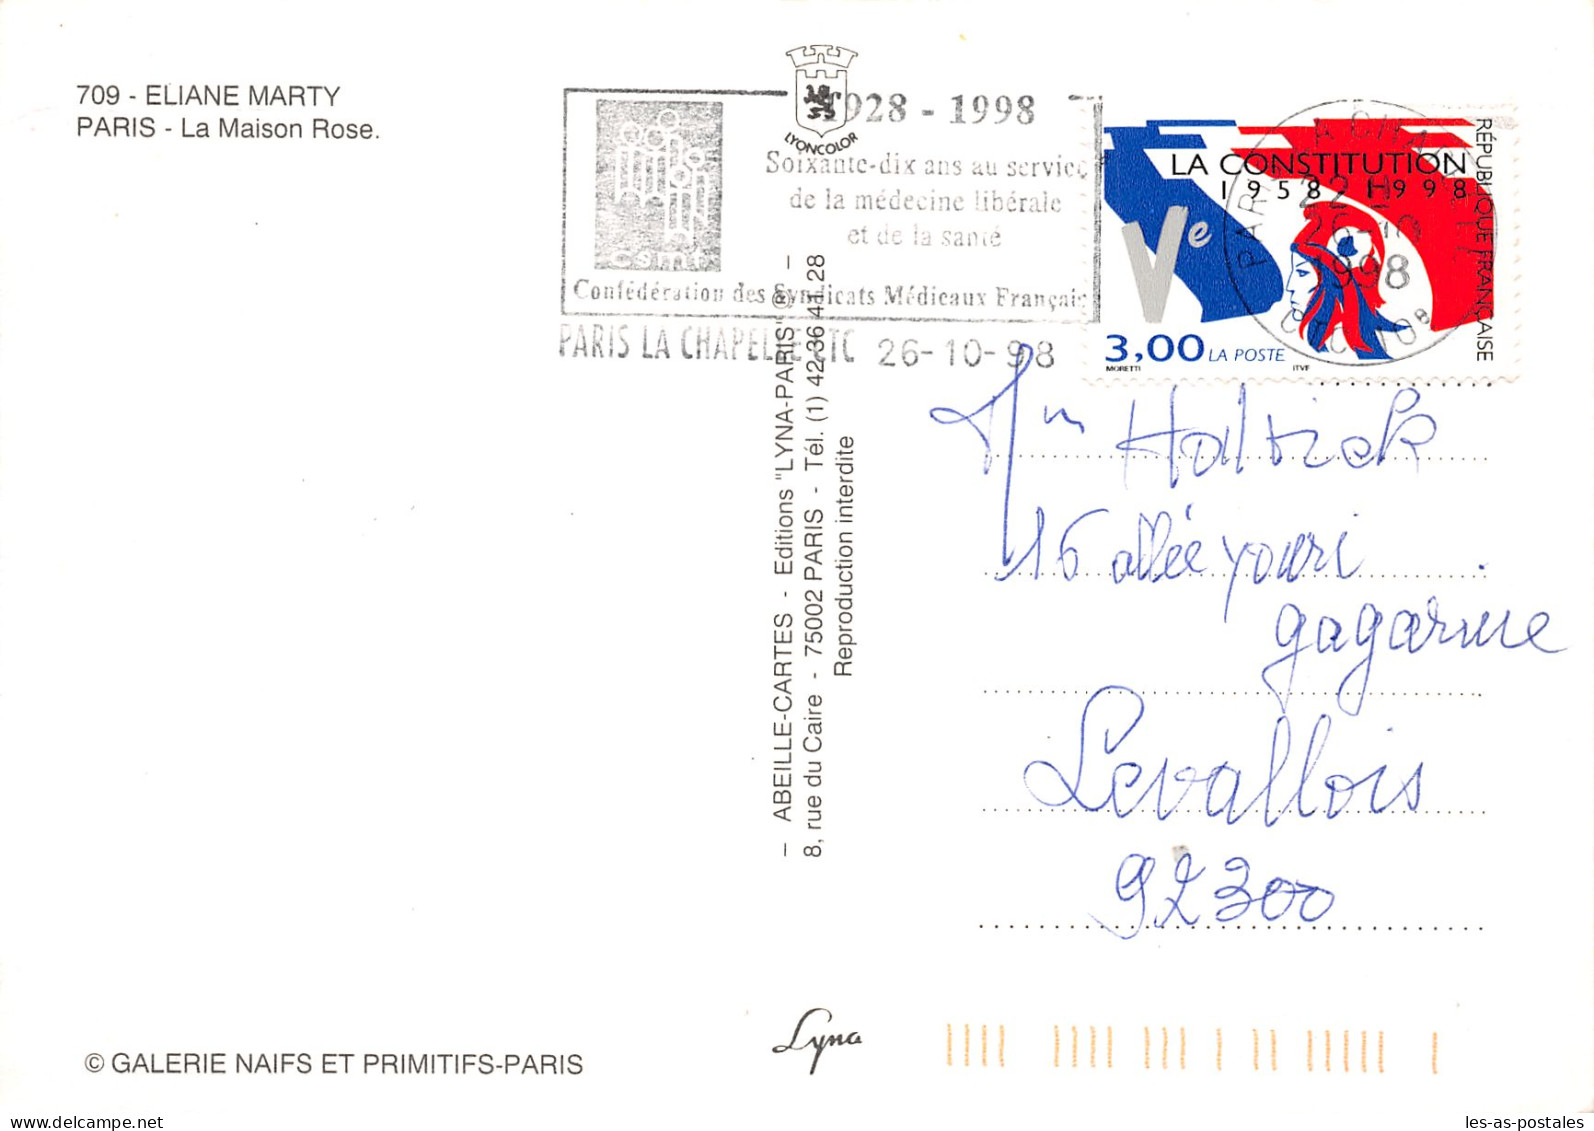 709 - ELIANE MARTY
PARIS - La Maison Rose.
LYONCOLOR
1928 - 1998
Soixante-dix ans au service
de la médecine libérale
et de la santé
csmf
Confédération des Syndicats Médicaux Français
PARIS LA CHAPELLE CTC 26-10-98
LA CONSTITUTION
1958 1998
Ve
3,00 LA POSTE
MORETTI ITVF
RÉPUBLIQUE FRANÇAISE
22 H
26-10
1998
— ABEILLE-CARTES - Editions "LYNA-PARIS" ® —
8, rue du Caire - 75002 PARIS - Tél. (1) 42 36 41 28
Reproduction interdite
16 allée youri
gagarine
Levallois
92300
Lyna
© GALERIE NAIFS ET PRIMITIFS-PARIS
les-as-postales.com